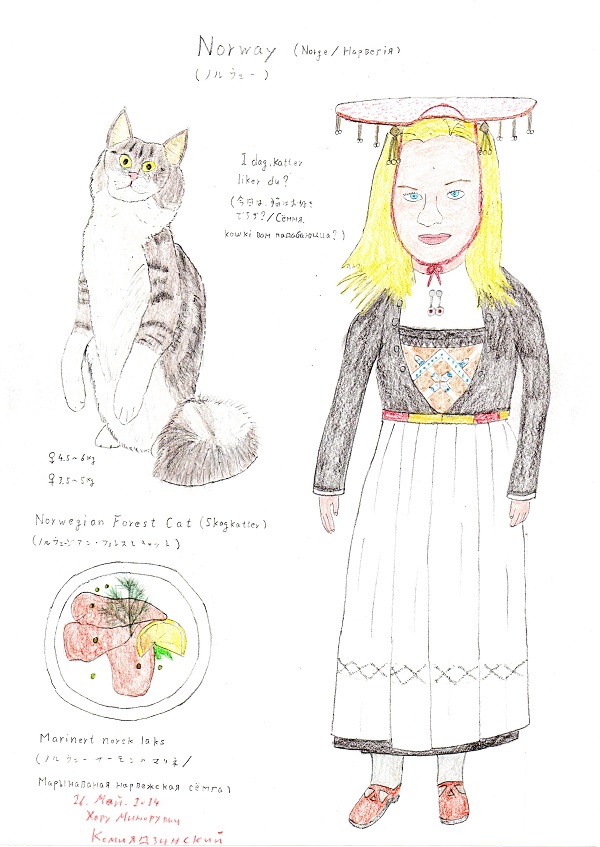 Norway (Norge/Нарвегія)
(ノルウェー)
I dag, katter
liker du?
(今日は、猫は大好き
ですか?/Сёння,
кошкі вам падабаюцца?)
♀4.5~6kg
♀3.5~5kg
Norwegian Forest Cat (Skogkatter)
(ノルウェージアン・フォレストキャット)
Marinert norsk laks
(ノルウェーサーモンのマリネ/
Марынаваная нарвежская сёмга)
21. Май. 2014
Хору Минорувич
Комиядзинский